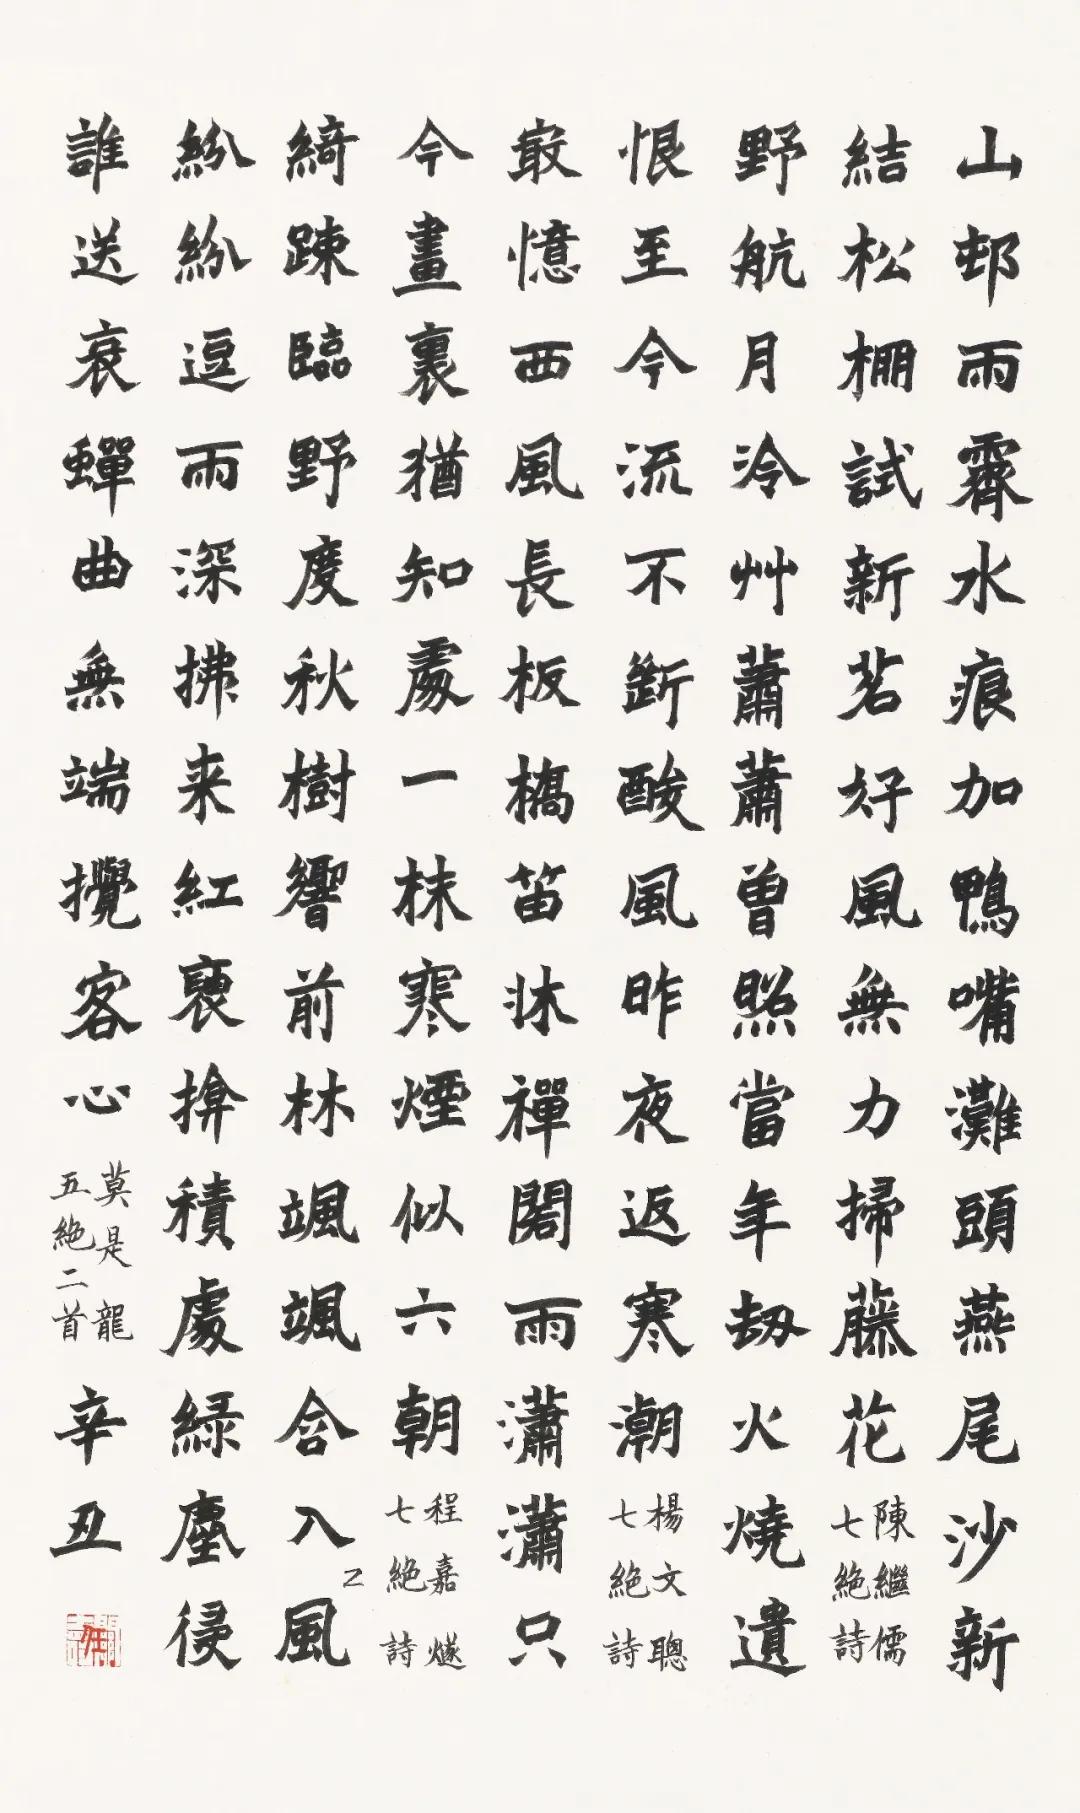 山邨雨霽水痕加鴨嘴灘頭燕尾沙新
結松棚試新茗好風無力掃藤花
陳繼儒
七絕詩
野航月冷艸蕭蕭曾照當年刼火燒遺
恨至今流不斷酸風昨夜返寒潮
楊文聰
七絕詩
㝡憶西風長板橋笛牀禪閣雨瀟瀟只
今畫裏猶知處一抹寒煙似六朝
程嘉燧
七絕詩
綺踈臨野度秋樹響前林颯颯合入乙風
紛紛逗雨深拂来紅褎揜積處綠塵侵
誰送哀蟬曲無端攪客心
莫是龍
五絕二首
辛丑